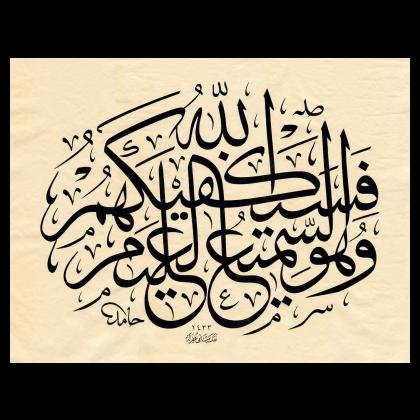 فَسَيَكْفِيكَهُمُ اللهُ ۖ
وَهُوَ السَّمِيعُ الْعَلِيمُ
حامد
١٤٣٣